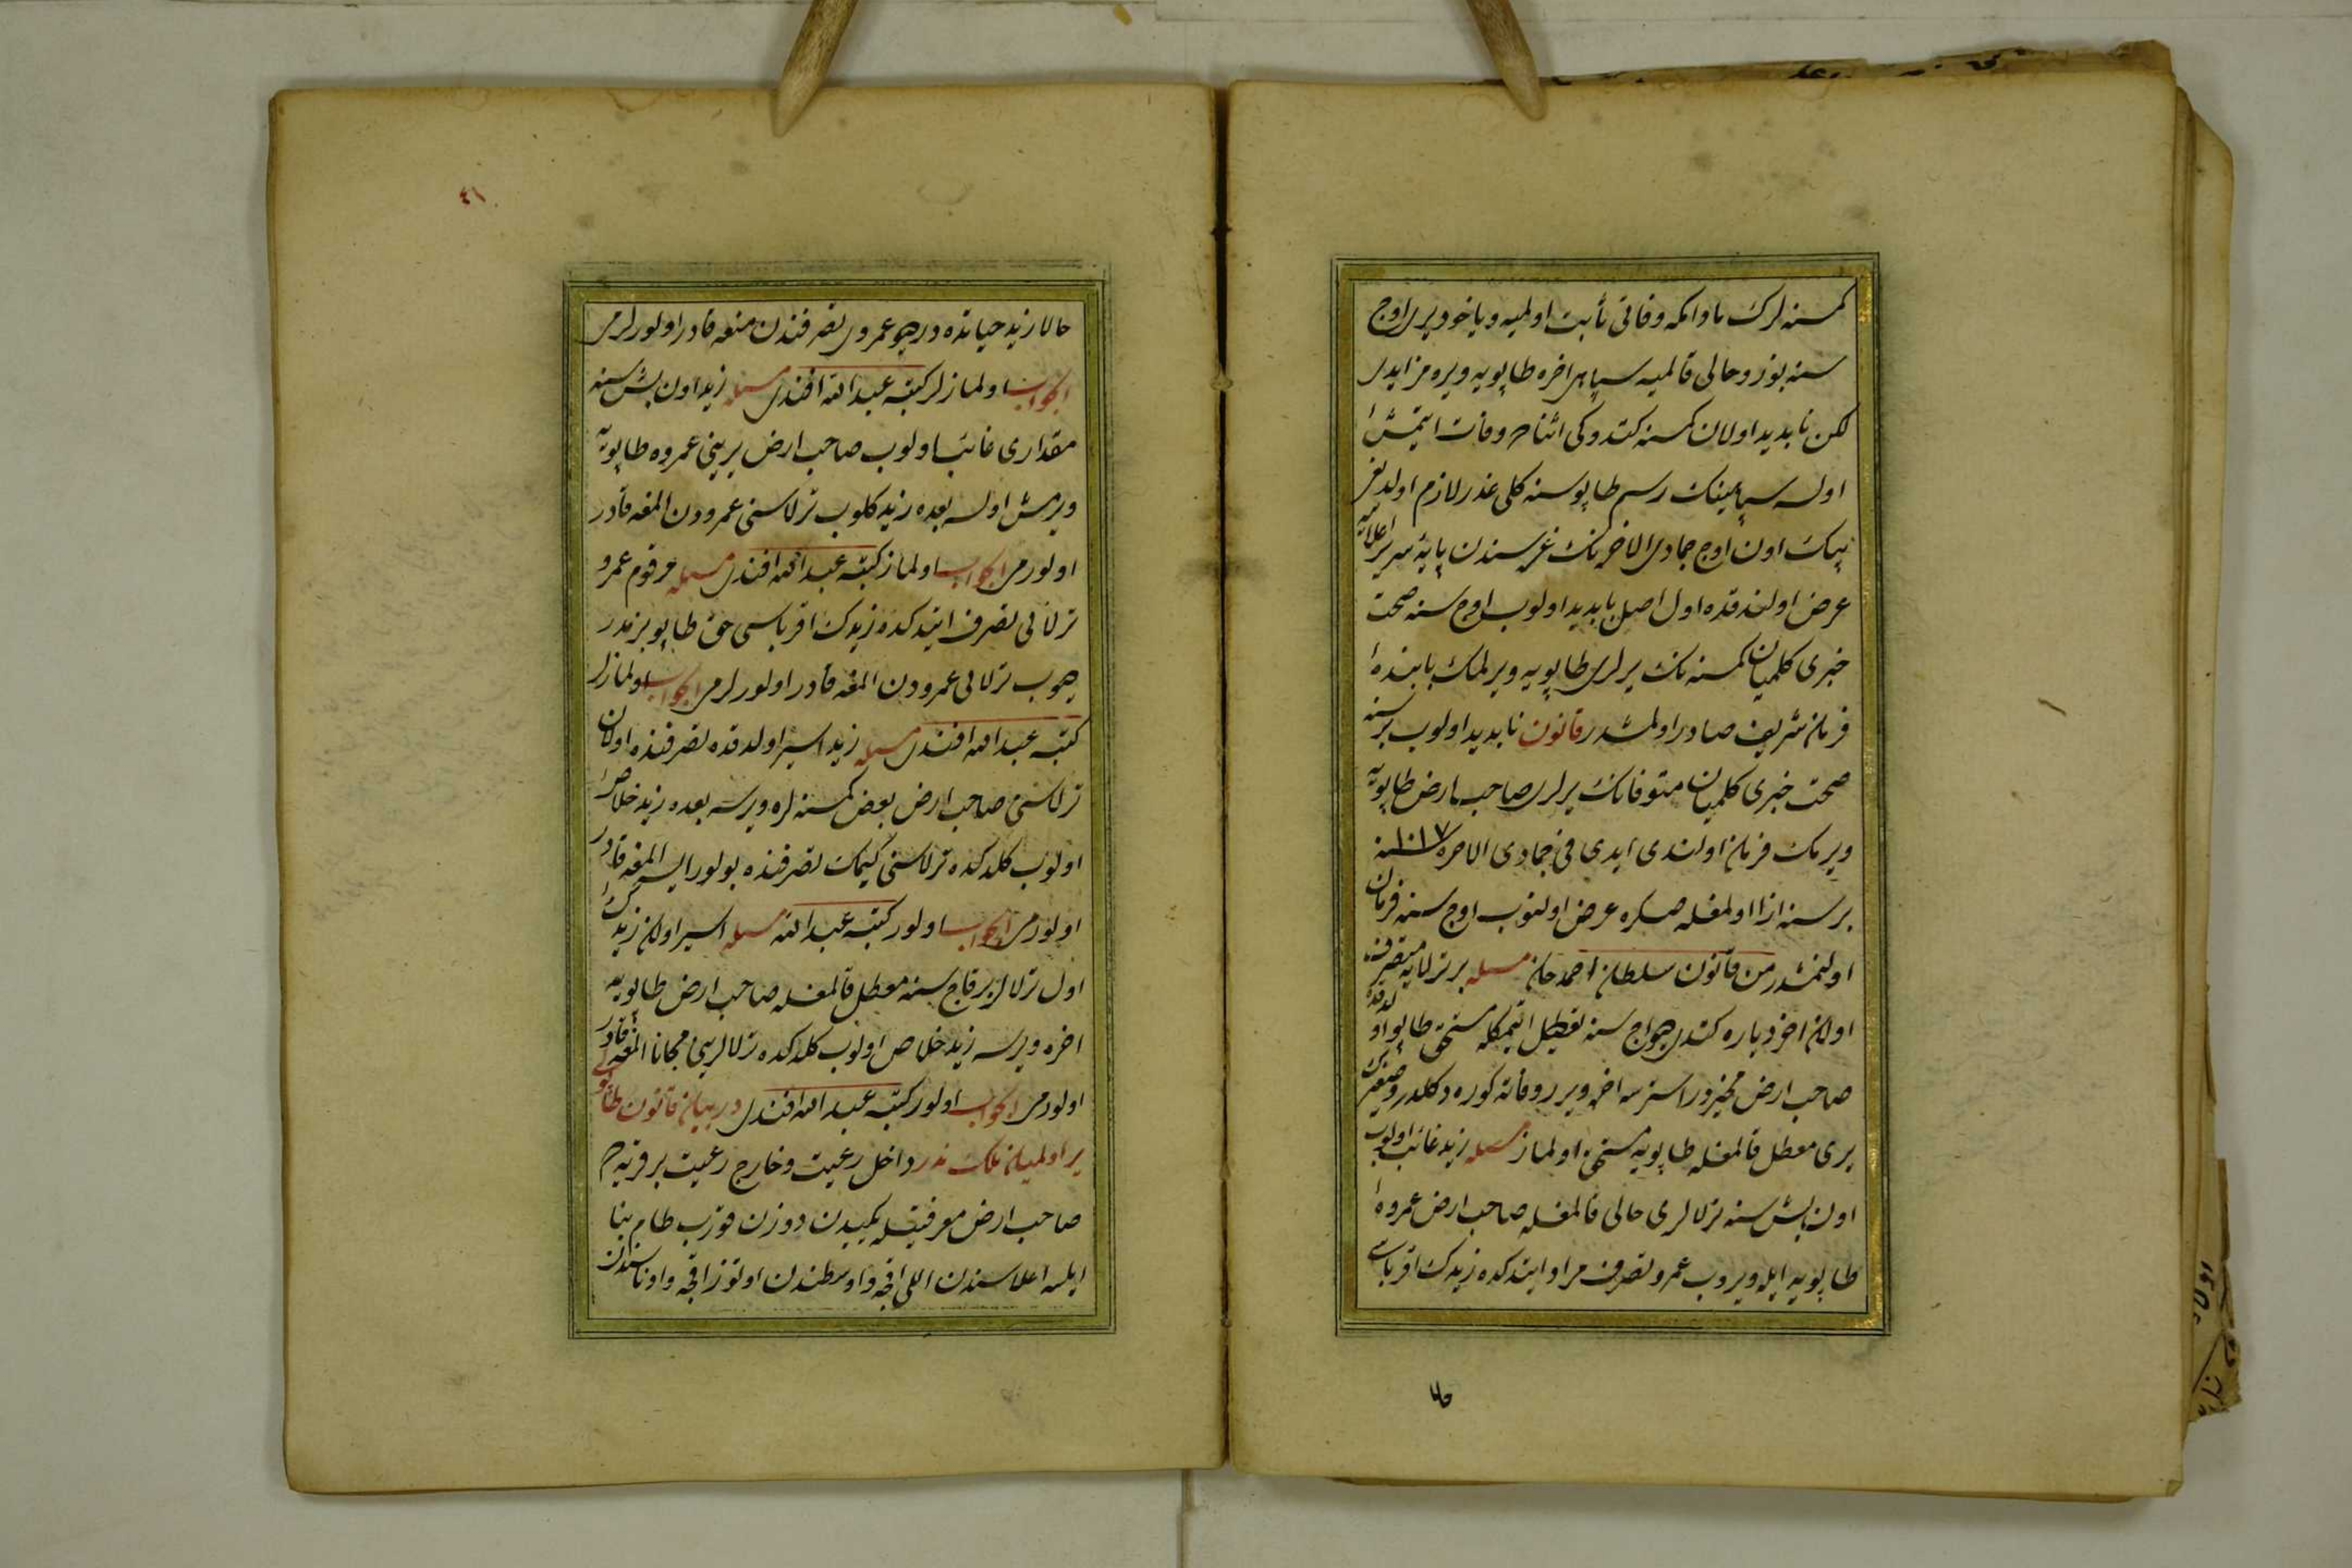 كمسنه لرك مادامكه وفاتی ثابت اولمیه ویاخود یری اوج
سنه بوز و حالی قالمیه سپاهی اخره طاپویه ویره مز ایدی
لكن نابدید اولان كمسنه كتدوكی اثناده وفات ایتمش
اولسه سپاهینك رسم طاپوسنه كلی غدر لازم اولدیغی
بیك اون اوج جمادی الاخرنك غره سندن پایهٔ سریر اعلایه
عرض اولندقده اول اصل نابدید اولوب اوج سنه صحت
خبری كلمیان كمسنه نك یرلری طاپویه ویرلمك بابنده
فرمان شریف صادر اولمشدر قانون نابدید اولوب بر سنه
صحت خبری كلمیان متوفانك یرلری صاحب ارض طاپویه
ویرمك فرمان اولندی ایدی فی جمادی الاخره ١٠١٧ سنه
بر سنه از اولمغله صكره عرض اولنوب اوج سنه فرمان
اولنمشدر من قانون سلطان احمد خان مسئله بر ترلایه متصرف
اولان اخر دیاره كندی هواج سنه تعطیل ایتمكله مستحق طاپو اولدقده
صاحب ارض مخیردر استرسه اخره ویرر وفاته كوره دكلدر و صغیرك
یری معطل قالمغله طاپویه مستحق اولماز مسئله زید غائب اولوب
اون بش سنه ترلالری حالی قالمغله صاحب ارض عمروه
طاپویه ایله ویروب عمرو تصرف مراد ایتدكده زیدك اقرباسی
حالا
٤١
حالا زید حیاتده در دیو عمروی تصرفندن منعه قادر اولورلر می
الجواب اولمازلر كتبه عبد الله افندی مسئله زید اون بش سنه
مقداری غائب اولوب صاحب ارض یرینی عمروه طاپویه
ویرمش اولسه بعده زید كلوب ترلاسنی عمرودن المغه قادر
اولور می الجواب اولماز كتبه عبد الله افندی مسئله مرقوم عمرو
ترلایی تصرف ایتدكده زیدك اقرباسی حق طاپو بزمدر
دیوب ترلایی عمرودن المغه قادر اولورلر می الجواب اولمازلر
كتبه عبد الله افندی مسئله زید اسیر اولدقده تصرفنده اولان
ترلاسنی صاحب ارض بعض كمسنه لره ویرسه بعده زید خلاص
اولوب كلدكده ترلاسنی كیمك تصرفنده بولور ایسه المغه قادر
اولور می الجواب اولور كتبه عبد الله مسئله اسیر اولان زیدك
اول ترلالر بر قاج سنه معطل قالمغله صاحب ارض طاپویه
اخره ویرسه زید خلاص اولوب كلدكده ترلالرینی مجانا المغه قادر
اولور می الجواب اولور كتبه عبد الله افندی در بیان قانون طاپوی
یر اولمیان ملك ندر داخل رعیت و خارج رعیت بر قریه ده
صاحب ارض معرفتیله یكیدن دوزن قوزب طام بنا
ایلسه اعلاسندن اللی اقچه و اوسطندن اوتوز اقچه و ادناسندن